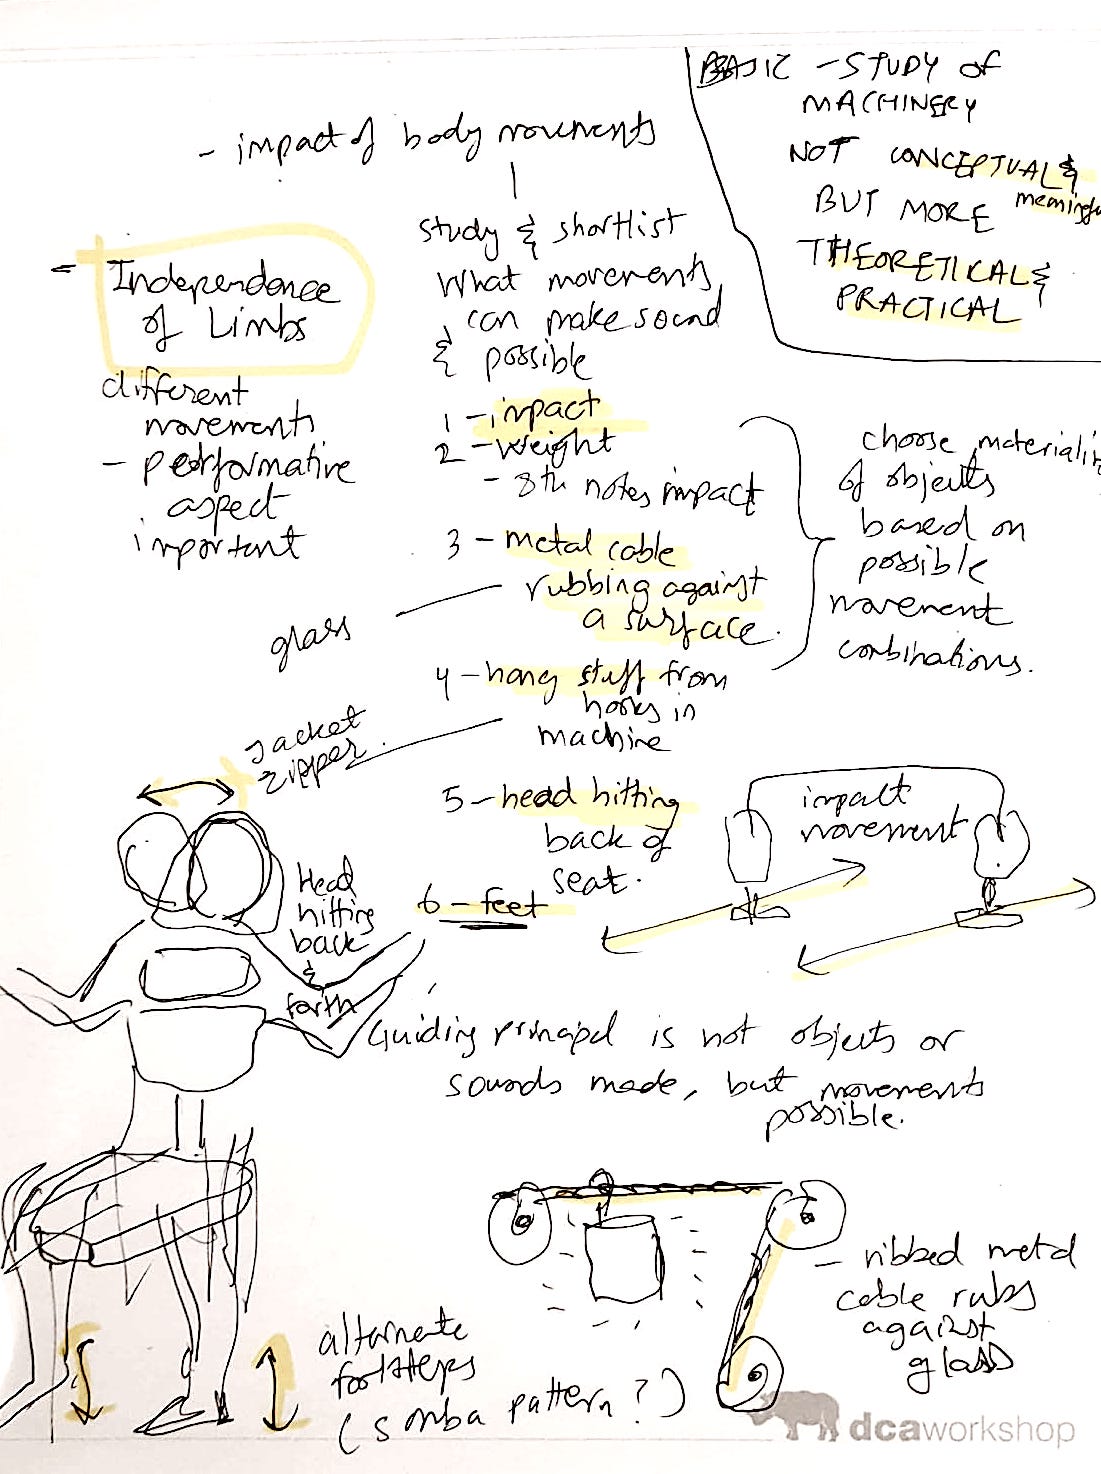 BASIC - STUDY OF
MACHINERY
NOT CONCEPTUAL &
meaningfu
BUT MORE
THEORETICAL &
PRACTICAL
- impact of body movements
study & shortlist
what movements
can make sound
& possible
1 - impact
2 - weight
- 8th notes impact
3 - metal cable
rubbing against
a surface.
4 - hang stuff from
hooks in
machine
5 - head hitting
back of
seat.
6 - feet
- Independence
of Limbs
different
movements
- performative
aspect
important
glass
jacket
zipper.
choose materiali
of objects
based on
possible
movement
combinations.
impact
movement
Head
hitting
back
&
forth
Guiding principel is not objects or
sounds made, but movements
possible.
- ribbed metal
cable rubs
against
glass
alternate
footsteps
(samba pattern?)
dcaworkshop